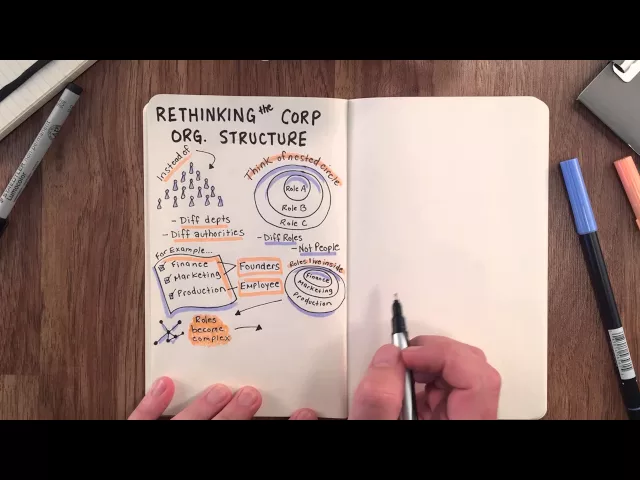 RETHINKING the CORP
ORG. STRUCTURE
Instead of
- Diff depts
- Diff authorities
Think of nested circle
Role A
Role B
Role C
- Diff Roles
- Not People
For Example...
Finance
Marketing
Production
Founders
Employee
Roles live inside
Finance
Marketing
Production
Roles
become
complex